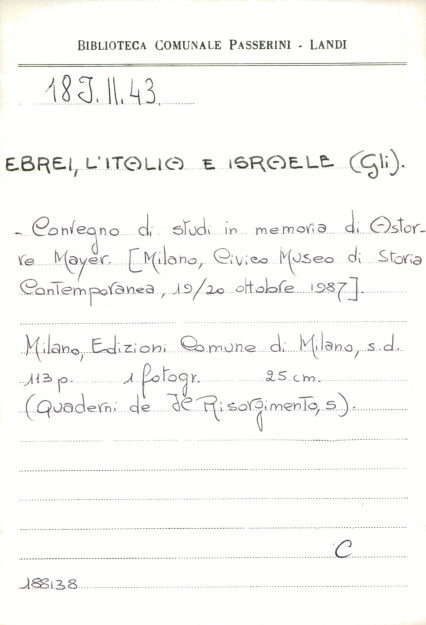 BIBLIOTECA COMUNALE PASSERINI - LANDI
18 J. II. 43.
EBREI, L'ITALIA E ISRAELE (Gli).
- Convegno di studi in memoria di Astor-
re Mayer. [Milano, Civico Museo di Storia
Contemporanea, 19/20 ottobre 1987].
Milano, Edizioni Comune di Milano, s.d.
113 p. 1 fotogr. 25 cm.
(Quaderni de Il Risorgimento, 5).
C
188138